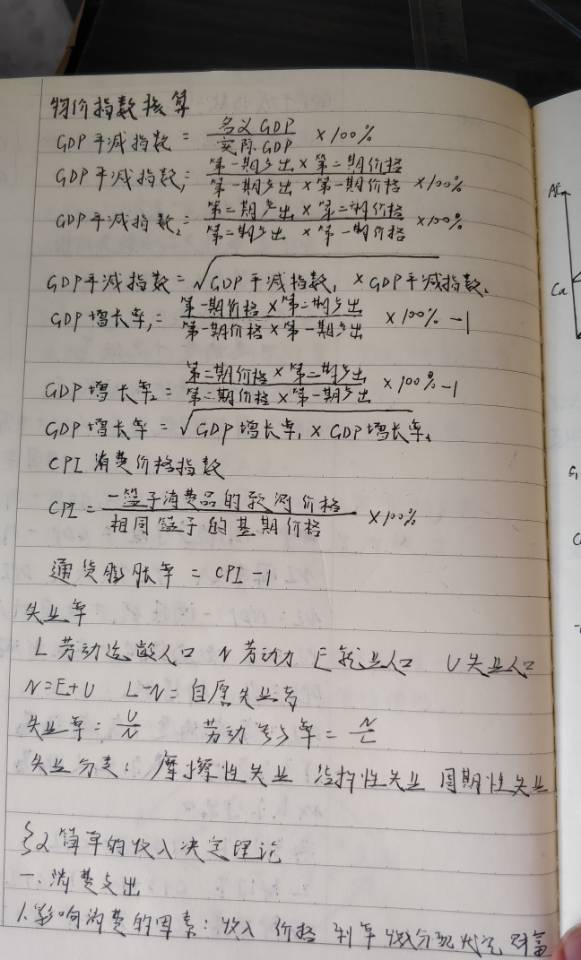 物价指数核算
GDP平减指数 = 名义GDP / 实际GDP ×100%
GDP平减指数₁ = 第一期产出×第二期价格 / 第一期产出×第一期价格 ×100%
GDP平减指数₂ = 第二期产出×第二期价格 / 第二期产出×第一期价格 ×100%
GDP平减指数 = √GDP平减指数₁ × GDP平减指数₂
GDP增长率₁ = 第一期价格×第二期产出 / 第一期价格×第一期产出 ×100% -1
GDP增长率₂ = 第二期价格×第二期产出 / 第二期价格×第一期产出 ×100% -1
GDP增长率 = √GDP增长率₁ × GDP增长率₂
CPI 消费价格指数
CPI = 一篮子消费品的 价格 / 相同篮子的基期价格 ×100%
通货膨胀率 = CPI -1
失业率
L 劳动适龄人口 N 劳动力 E 就业人口 U 失业人口
N=E+U L-N= 自愿失业者
失业率 = U/N 劳动参与率 = N/L
失业分类: 摩擦性失业 结构性失业 周期性失业
§2 简单的收入决定理论
一、消费支出
1.影响消费的因素: 收入 价格 利率 分配状况 财富
Al
Ca